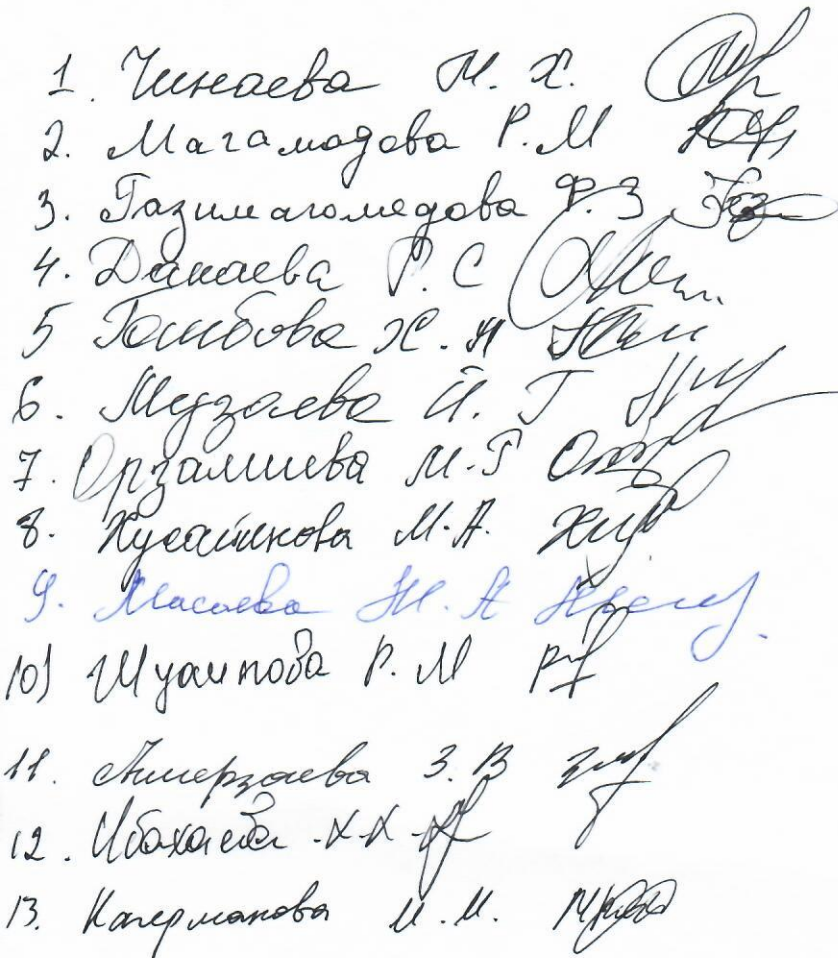 1. Чинаева М. Х.
2. Магамадова Р. М
3. Газимагомедова Ф. З
4. Данаева Р. С
5 Гошбова Х. Н
6. Музаева Й. Г
7. Орзамиева М. Г
8. Хусайнова М. А.
9. Масаева Ж. А
10) Шуаипова Р. М
11. Амерзаева З. В
12. Ибахаева Х. Х.
13. Кагерманова М. М.